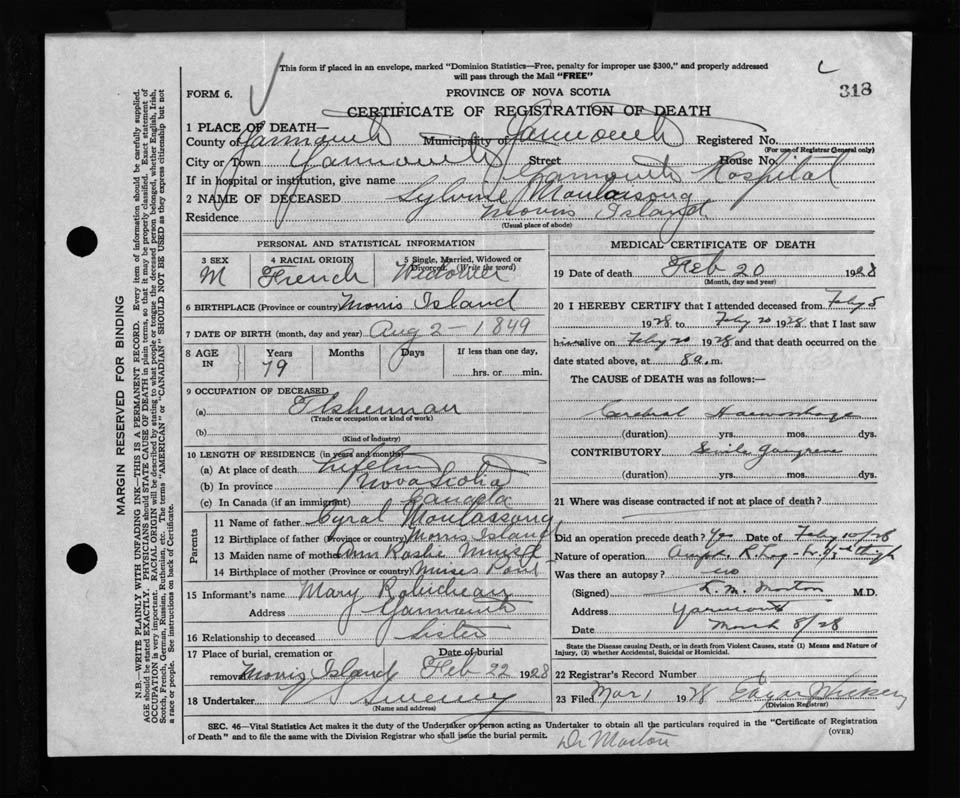 This form if placed in an envelope, marked "Dominion Statistics—Free, penalty for improper use $300," and properly addressed
will pass through the Mail "FREE"
FORM 6.
PROVINCE OF NOVA SCOTIA
318
CERTIFICATE OF REGISTRATION OF DEATH
1 PLACE OF DEATH—
County of Yarmouth Municipality of Yarmouth Registered No.
(For use of Registrar General only)
City or Town Yarmouth Street House No.
If in hospital or institution, give name Yarmouth Hospital
2 NAME OF DECEASED Sylvine
Residence Morris Island
(Usual place of abode)
PERSONAL AND STATISTICAL INFORMATION
3 SEX 4 RACIAL ORIGIN 5 Single, Married, Widowed or Divorced (Write the word)
M French Widower
6 BIRTHPLACE (Province or country) Morris Island
7 DATE OF BIRTH (month, day and year) Aug 2 - 1849
8 AGE IN Years Months Days If less than one day,
79 hrs. or min.
9 OCCUPATION OF DECEASED
(a) Fisherman
(Trade or occupation or kind of work)
(b)
(Kind of Industry)
10 LENGTH OF RESIDENCE (in years and months)
(a) At place of death Lifetime
(b) In province Nova Scotia
(c) In Canada (if an immigrant) Canada
Parents
11 Name of father
12 Birthplace of father (Province or country) Morris Island
13 Maiden name of mother Ann Rosalie Muise
14 Birthplace of mother (Province or country) Muises Point
15 Informant's name Mary Robicheau
Address Yarmouth
16 Relationship to deceased Sister
17 Place of burial, cremation or removal Date of burial
Morris Island Feb 22 1928
18 Undertaker V Sweeny
(Name and address)
MEDICAL CERTIFICATE OF DEATH
19 Date of death Feb 20 1928
(Month, day and year)
20 I HEREBY CERTIFY that I attended deceased from Feby 5
1928 to Feby 20 1928 that I last saw
him alive on Feby 20 1928 and that death occurred on the
date stated above, at 8 a. m.
The CAUSE of DEATH was as follows:—
Cerebral Haemorrhage
(duration) yrs. mos. dys.
CONTRIBUTORY Senile Gangrene
(duration) yrs. mos. dys.
21 Where was disease contracted if not at place of death?
Did an operation precede death? Yes Date of Feby 10/28
Nature of operation Amput. R. Leg thigh
Was there an autopsy? no
(Signed) L. M. Morton M.D.
Address Yarmouth
Date March 8/28
State the Disease causing Death, or in death from Violent Causes, state (1) Means and Nature of
Injury, (2) whether Accidental, Suicidal or Homicidal.
22 Registrar's Record Number
23 Filed Mar 1 1928 Edgar
(Division Registrar)
SEC. 46—Vital Statistics Act makes it the duty of the Undertaker or person acting as Undertaker to obtain all the particulars required in the "Certificate of Registration
of Death" and to file the same with the Division Registrar who shall issue the burial permit.
(OVER)
Dr Morton
MARGIN RESERVED FOR BINDING
N.B.—WRITE PLAINLY WITH UNFADING INK—THIS IS A PERMANENT RECORD. Every item of information should be carefully supplied.
AGE should be stated EXACTLY. PHYSICIANS should STATE CAUSE OF DEATH in plain terms, so that it may be properly classified. Exact statement of
OCCUPATION is very important. RACIAL ORIGIN will be described by stating to what people or tongue the deceased person belonged, whether English, Irish,
Scotch, French, German, Russian, Ruthenian, etc. The terms "AMERICAN" or "CANADIAN" SHOULD NOT BE USED as they express citizenship but not
a race or people. See instructions on back of Certificate.